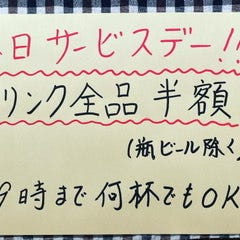 日サービスデー!!
リンク全品半額
(瓶ビール除く)
9時まで何杯でもOK